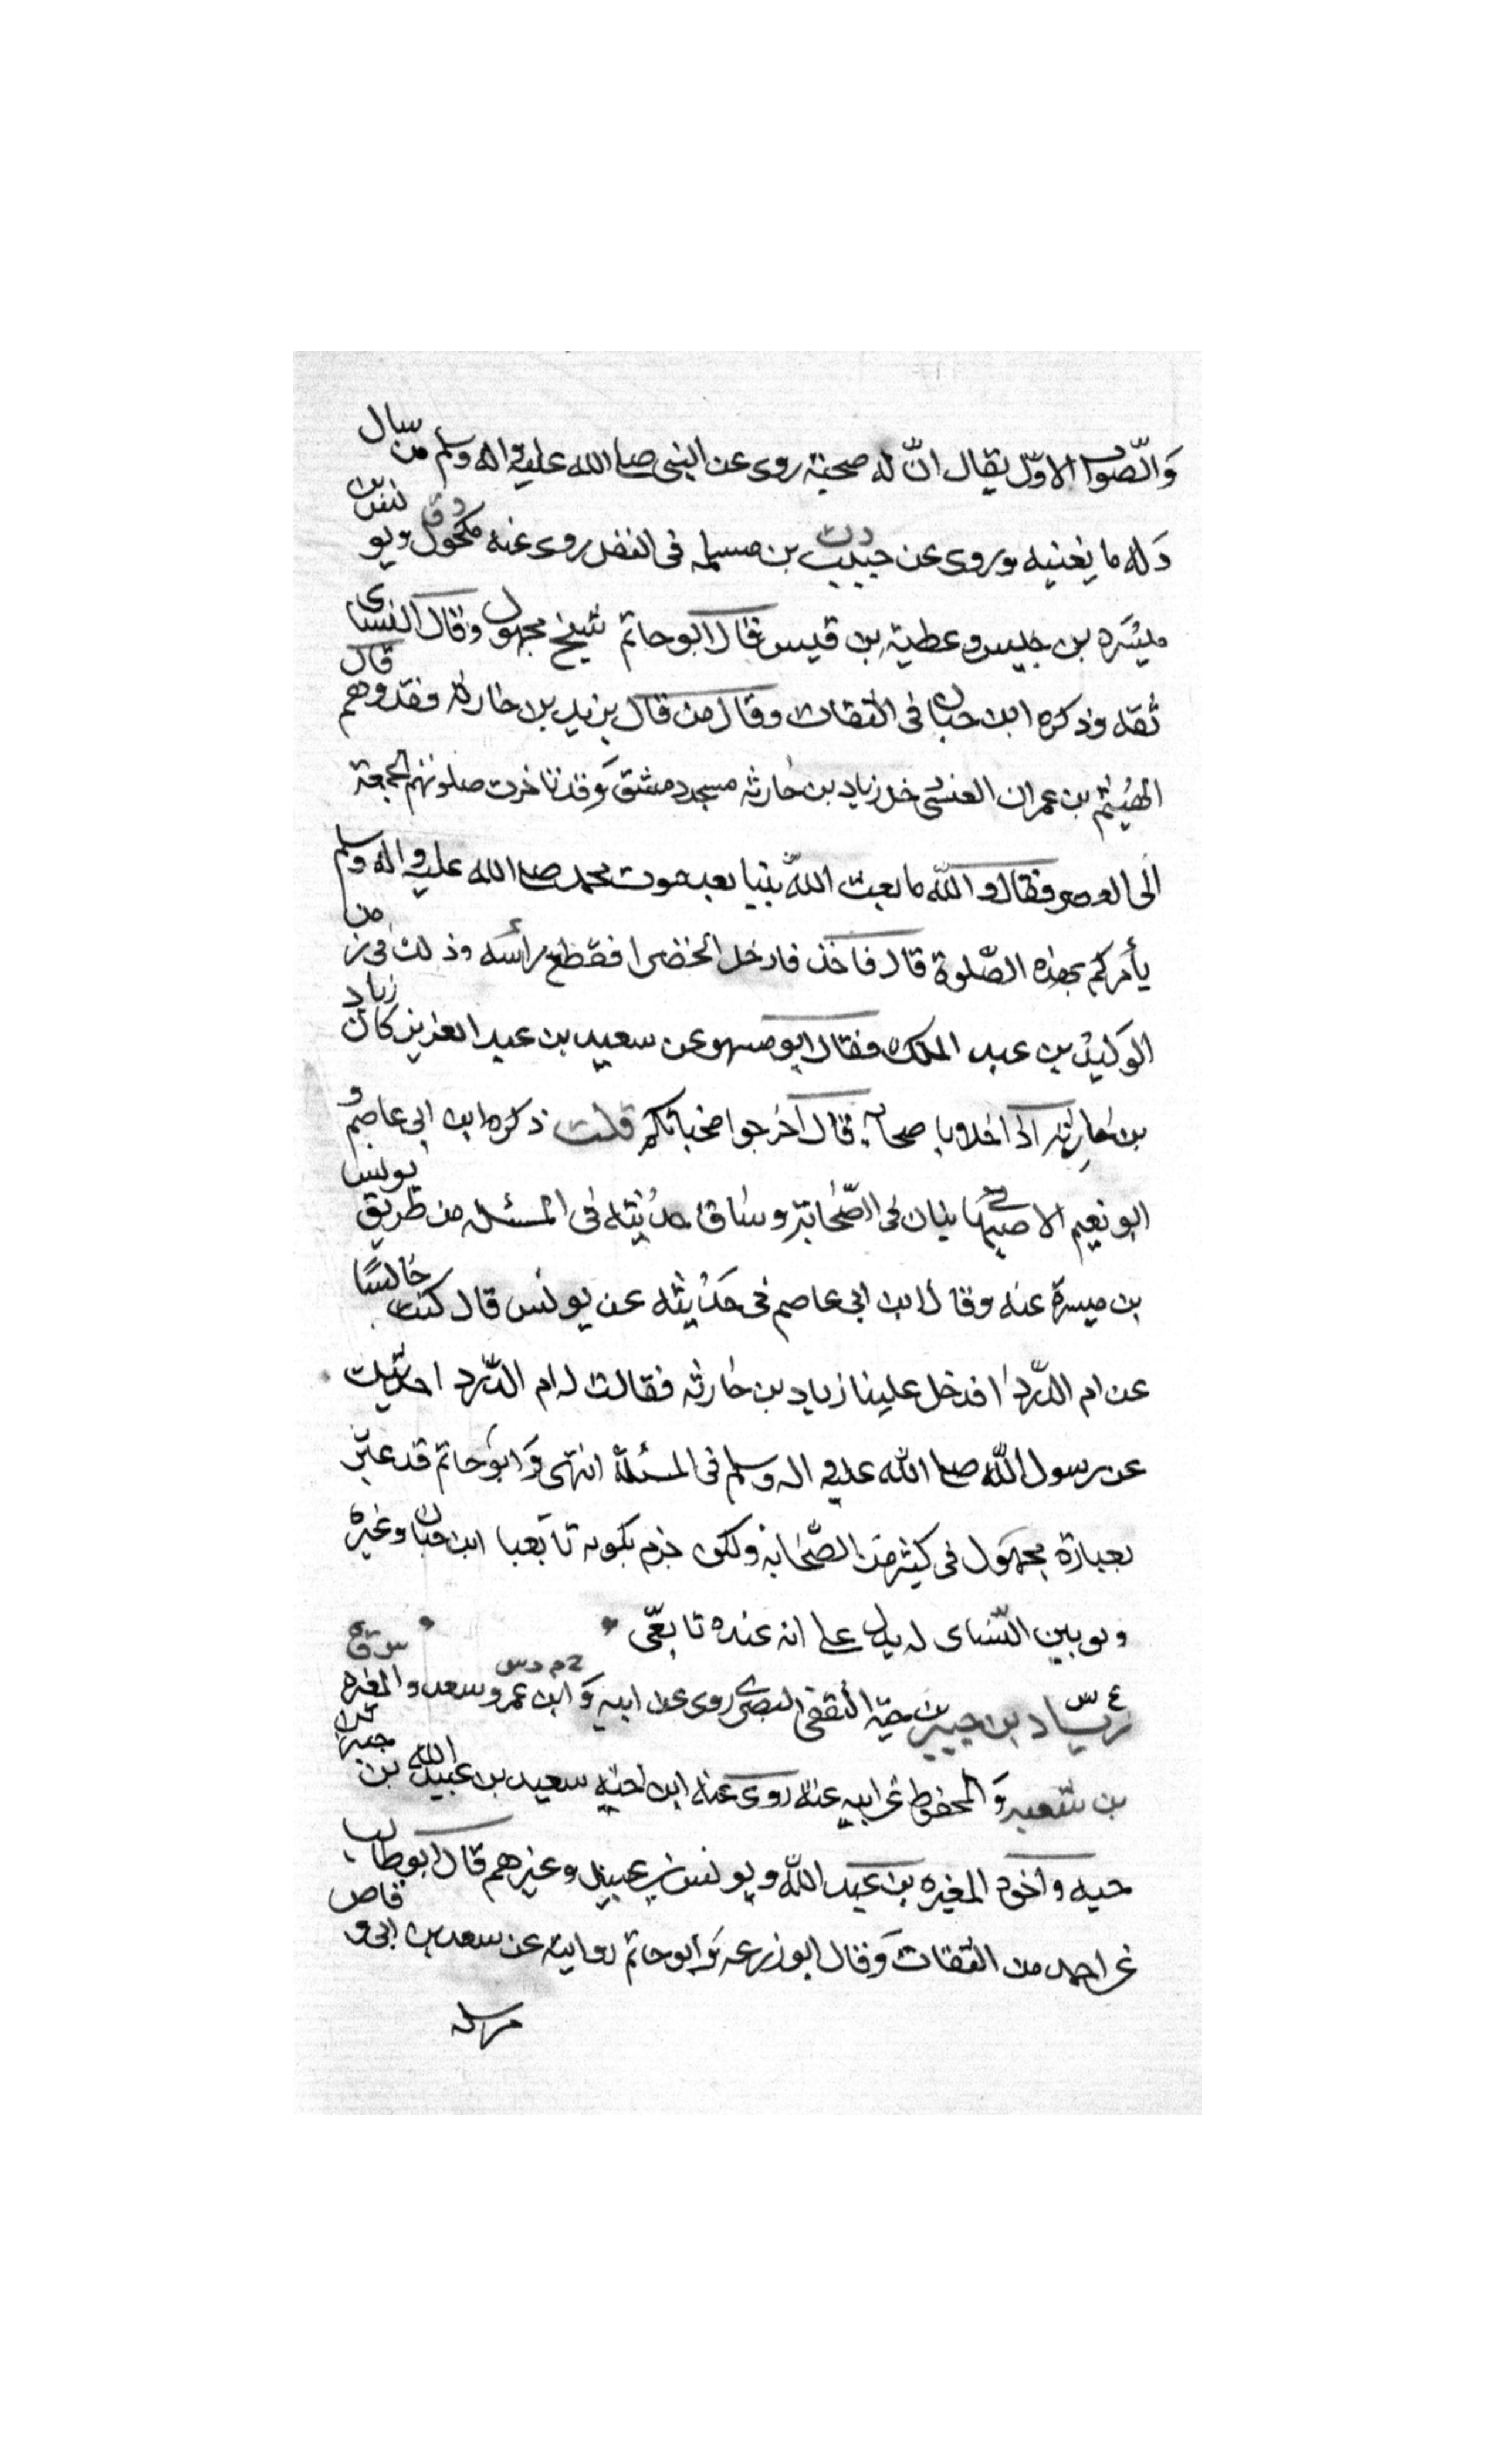 وَالصّواب الاوّل يقال انّ له صحبة روى عن النبى صلى الله عليه واله وسلم من سال
وَله ما يغنيه وروى عن حبيب بن مسلمه فى النفل روى عنه مكحول ويونس بن
ميسَره بن جليس وعطية بن قيس قال ابو حاتم شيخ مجهول وقال النسائ
ثقه وذكره ابن حبان فى الثقات وقال من قال يزيد بن حارثه فقد وهم قال
الهيثم بن عمران العنسى دخل زياد بن حارثه مسجد دمشق وَقد تاخرت صلوتهم الجمعة
الى العصر فقال والله ما بعث الله نبيا بعد موت محمد صلى الله عليه واله وسلم
يأمركم بهذه الصّلوة قال فاخذ فادخل الخضرا فقطع رأسه وذلك فى زمن
الوَليد بن عبد الملك فقال ابو مسهر عن سعيد بن عبد العزيز كان زياد
بن حارثه اذا خلا باصحابه قال اخرجوا مخباتكم قلت ذكره ابن ابى عاصم و
ابو نعيم الاصبهانيان فى الصّحابة وساق حديثه فى المسئله من طريق يونس
بن ميسرة عنه وقال ابن ابى عاصم فى حَديثه عن يونس قال كنت جالسًا
عن ام الدّردا فدخل علينا زياد بن حارثه فقالت له ام الدّردا حديثك
عن رسول الله صلى الله عليه اله وسلم فى المسئلة انتهى وَابو حاتم قد عبّر
بعبارة مجهول فى كثير من الصّحابة ولكن جزم بكونه تابعيا ابن حبان وغيره
وتوثيق النّسائ له يدل على انه عنده تابعّى
زيّاد بن جبير بن حيّة الثقفى البصرى روى عن ابيه وَابن عمر وسعد والمغيره
بن شعبه وَالمحفوظ عن ابيه عنه روى عنه ابن اخيه سعيد بن عبيد الله بن جبير بن
حيه واخوه المغيره بن عبد الله ويونس بن عبيد وغيرهم قال ابو طالب
عن احمد من الثقات وَقال ابو زرعه وَابو حاتم روايته عن سعد بن ابى وقاص
مرسله